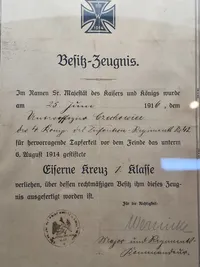 Besitz-Zeugnis.
Im Namen Sr. Majestät des Kaisers und Königs wurde
am 25 Juni 1916 dem
Unteroffizier
des 4. Komp. des Infanterie-Regiments
für hervorragende Tapferkeit vor dem Feinde das unterm
6. August 1914 gestiftete
Eiserne Kreuz 1 Klasse
verliehen, über dessen rechtmäßigen Besitz ihm dieses Zeug-
nis ausgefertigt worden ist.
Major und Regiments
Kommandeur